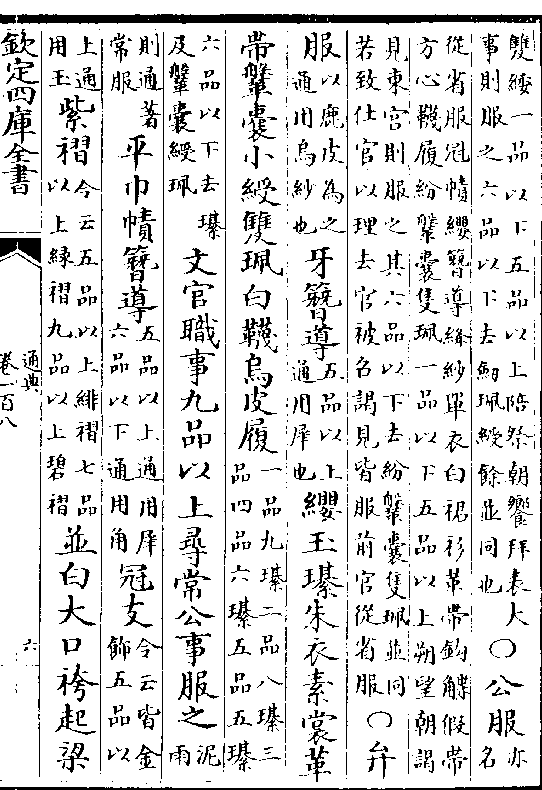 雙綬一品以下五品以上陪祭朝饗拜表大
事則服之六品以下去劒珮綬餘並同也
○公服
亦名
從省服冠幘纓簪導絳紗單衣白裙衫革帶鉤䚢假帶
方心韈履紛鞶囊隻珮一品以下五品以上朔望朝謁
見東宮則服之其六品以下去紛鞶囊隻珮並同
若致仕官以理去官被召謁見皆服前官從省服
○弁
服
以鹿皮為之
通用烏紗也
牙簪導
五品以上
通用犀也
纓玉璂朱衣素裳革
帶鞶囊小綬雙珮白韈烏皮履
一品九璂二品八璂三
品四品六璂五品五璂
六品以下去璂
及鞶囊綬珮
文官職事九品以上尋常公事服之
泥雨
則通著
常服
平巾幘簪導
五品以上通用犀
六品以下通用角
冠支
令云皆金
飾五品以
上通
用玉
紫褶
今云五品以上緋褶七品
以上緑褶九品以上碧褶
並白大口袴起梁
欽定四庫全書
通典
卷一百八
六